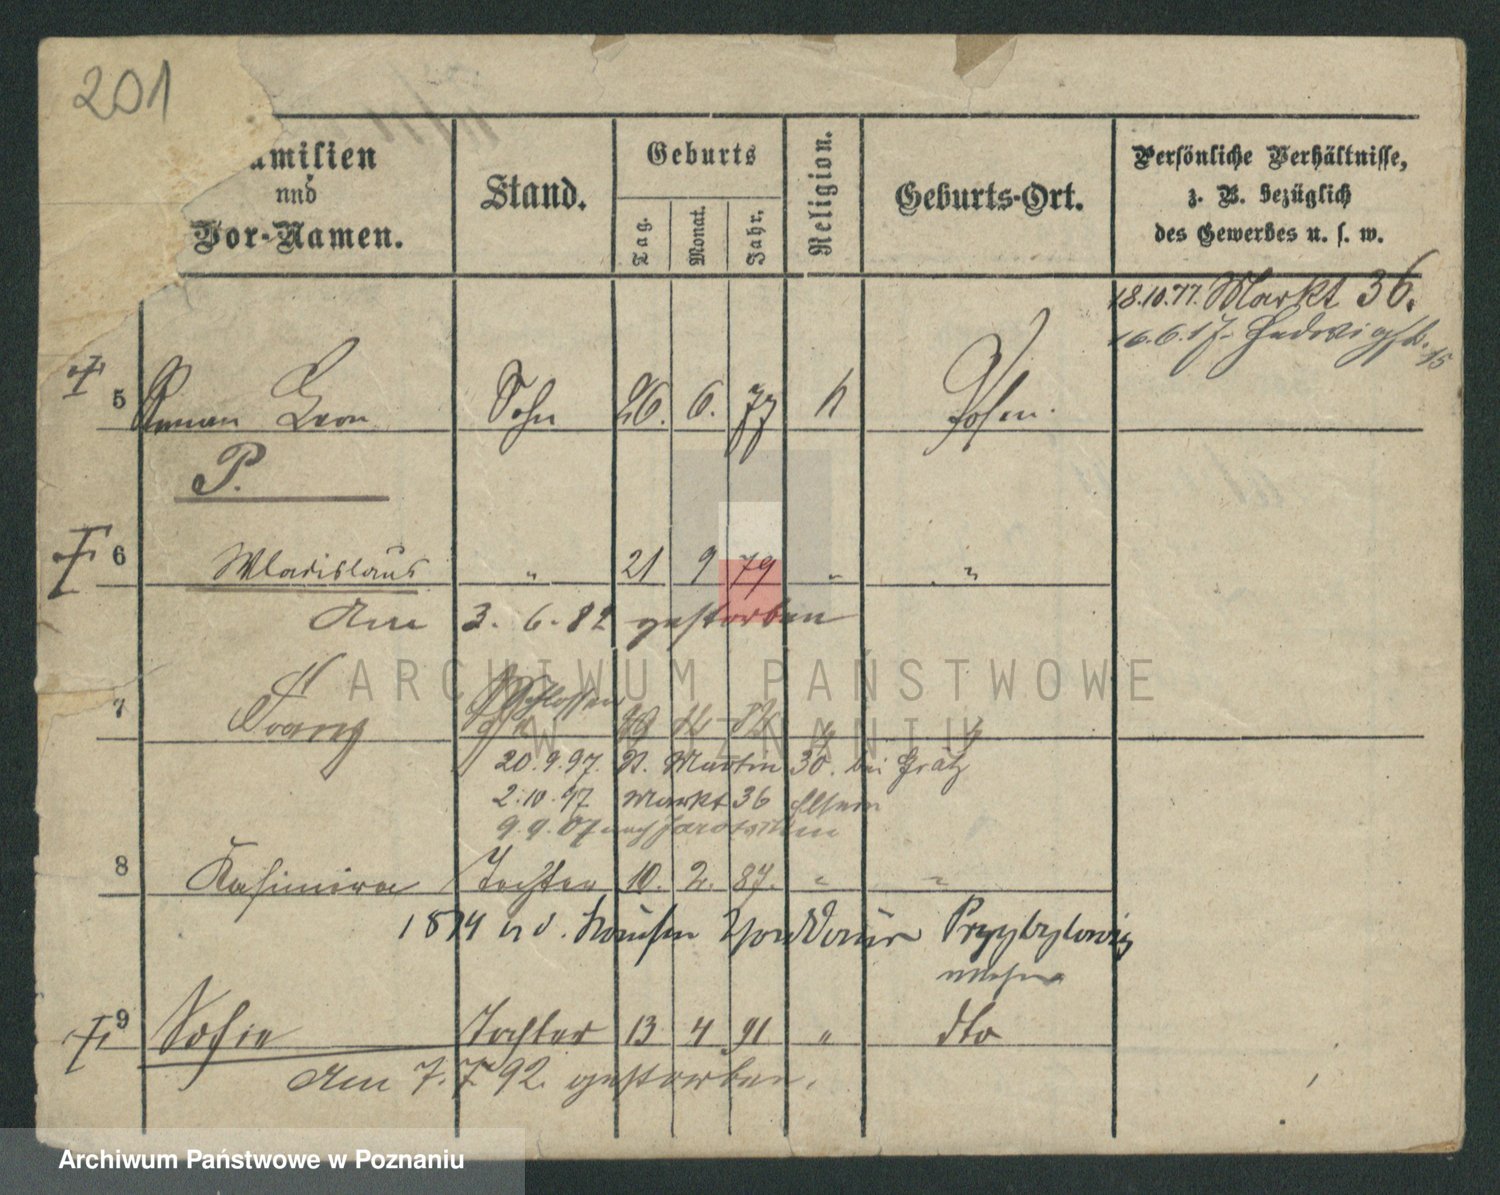 201
Familien
und
Vor-Namen.
Stand.
Geburts
Tag.
Monat.
Jahr.
Religion.
Geburts-Ort.
Persönliche Verhältnisse,
z. B. bezüglich
des Gewerbes u. s. w.
18.10.77. Markt 36.
16.6.17. Hedwigstr. 15
5 Roman Leon Sohn 26. 6. 77 k Posen.
P.
6 Wladislaus " 21 9 79 " "
Am 3. 6. 82 gestorben
7 Franz Schlosser
ARCHIWUM PAŃSTWOWE
W POZNANIU
20.9.97. St. Martin 30. bei Grätz
2.10.97 Markt 36 Eltern
9.9.07 nach Jarotschin
8 Kasimira Tochter 10. 2. 87. " "
9 Sofie Tochter 13 4 91 " dto
Am 7. 7. 92. gestorben.
Archiwum Państwowe w Poznaniu